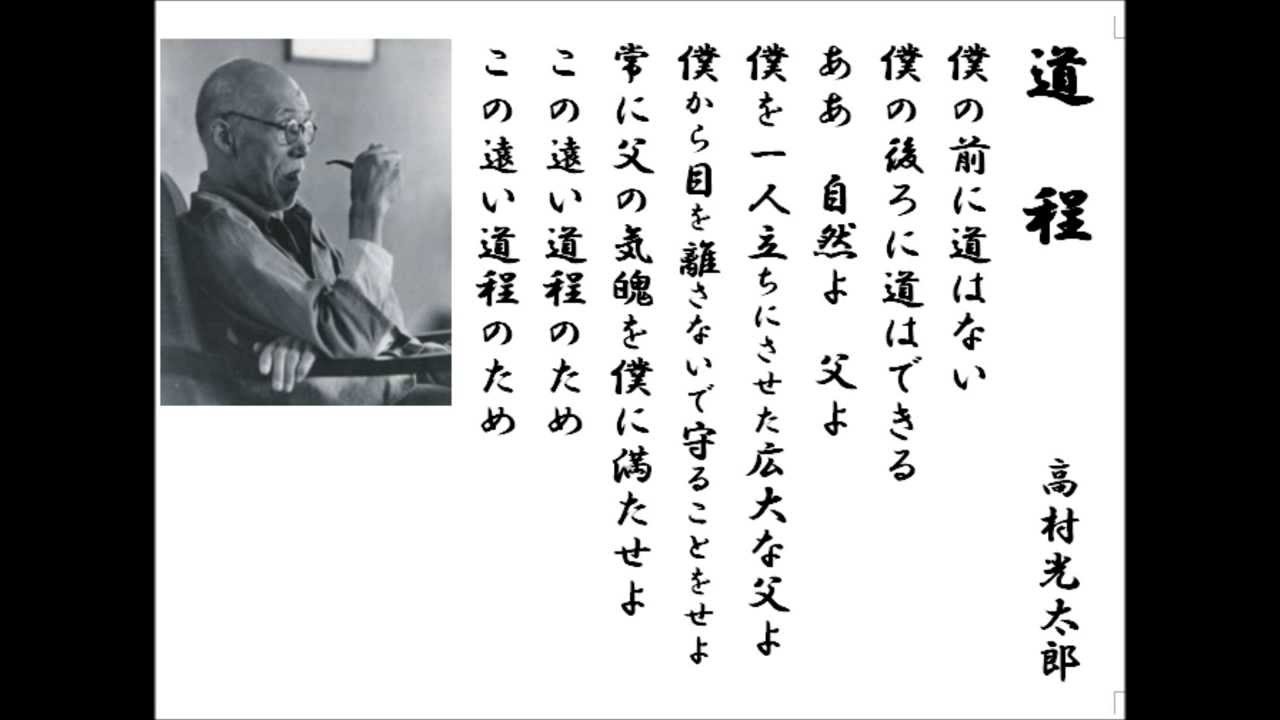 道程
高村光太郎
僕の前に道はない
僕の後ろに道はできる
ああ　自然よ　父よ
僕を一人立ちにさせた広大な父よ
僕から目を離さないで守ることをせよ
常に父の気魄を僕に満たせよ
この遠い道程のため
この遠い道程のため